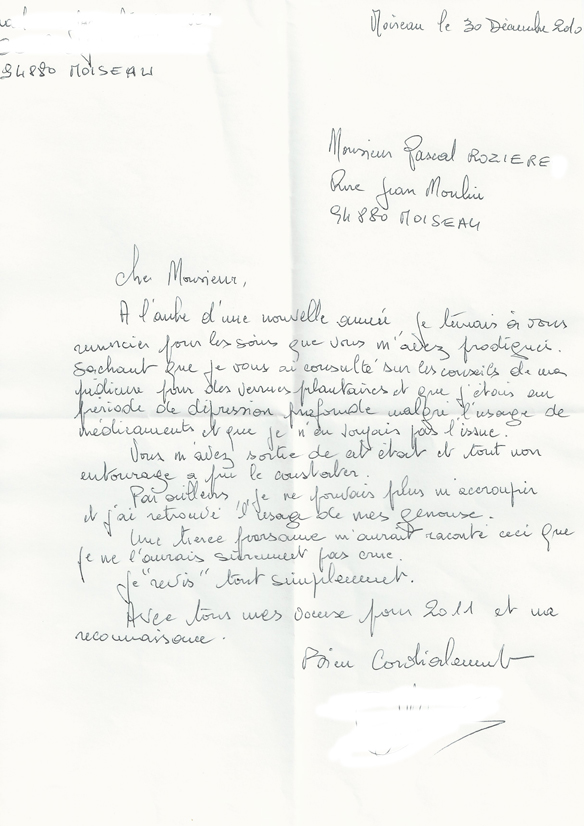 94880 MOISEAU
Noiseau le 30 Décembre 2010
Monsieur Pascal ROZIERE
Rue Jean Moulin
94880 NOISEAU
Cher Monsieur,
A l'aube d'une nouvelle année je tenais à vous
remercier pour les soins que vous m'avez prodigués.
Sachant que je vous ai consulté sur les conseils de ma
pédicure pour des verrues plantaires et que j'étais en
période de dépression profonde malgré l'usage de
médicaments et que je n'en voyais pas l'issue.
Vous m'avez sortie de cet état et tout mon
entourage a pu le constater.
Par ailleurs, je ne pouvais plus m'accroupir
et j'ai retrouvé l'usage de mes genoux.
Une tierce personne m'aurait raconté ceci que
je ne l'aurais sûrement pas crue.
Je "revis" tout simplement.
Avec tous mes voeux pour 2011 et ma
reconnaissance.
Bien Cordialement